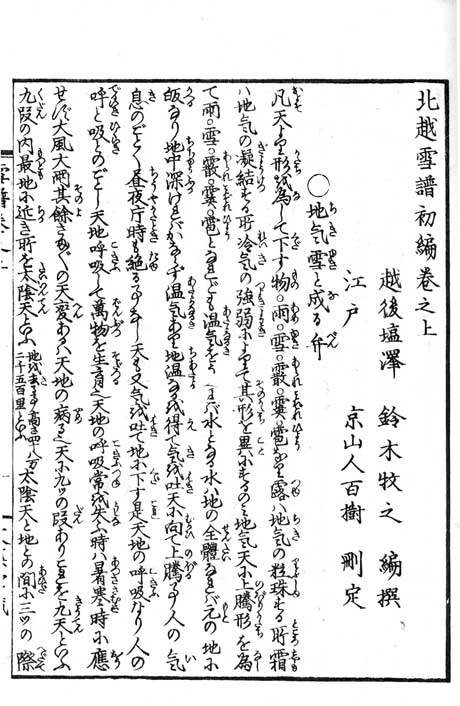 北越雪譜初編巻之上
越後塩澤 鈴木牧之 編撰
江戸 京山人百樹 刪定
○地気雪と成る弁
凡天より形を為して下す物○雨○雪○霰○霙○雹なり露ハ地気の粒珠する所霜
ハ地気の凝結する所冷気の強弱によりて其形を異にするのミ地気天に上騰形を為
て雨○雪○霰○霙○雹となれども温気をうくれバ水となる水ハ地の全體なれバ元の地に
皈なり地中深けれバかならず温気あり地温なるを得て気を吐天に向て上騰事人の気
息のごとく昼夜片時も絶る事なし天も又気を吐て地に下す是天地の呼吸なり人の
呼と吸とのごとし天地呼吸して萬物を生育也天地の呼吸常を失ふ時ハ暑寒時に應
せず大風大雨其餘さま〴〵の天変あるハ天地の病る也天に九ツの段ありこれを九天といふ
九段の内最地に近き所を太陰天といふ 地を去る事高さ四十八万二千五百里といふ 太陰天と地との間に三ツの際